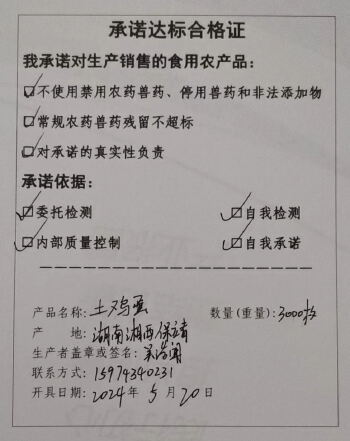 承诺达标合格证
我承诺对生产销售的食用农产品:
☑不使用禁用农药兽药、停用兽药和非法添加物
☑常规农药兽药残留不超标
☑对承诺的真实性负责
承诺依据:
☑委托检测 ☑自我检测
☑内部质量控制 ☑自我承诺
产品名称: 土鸡蛋 数量(重量): 3000枚
产 地: 湖南湘西保靖
生产者盖章或签名:
联系方式: 15974340231
开具日期: 2024年 5月20日